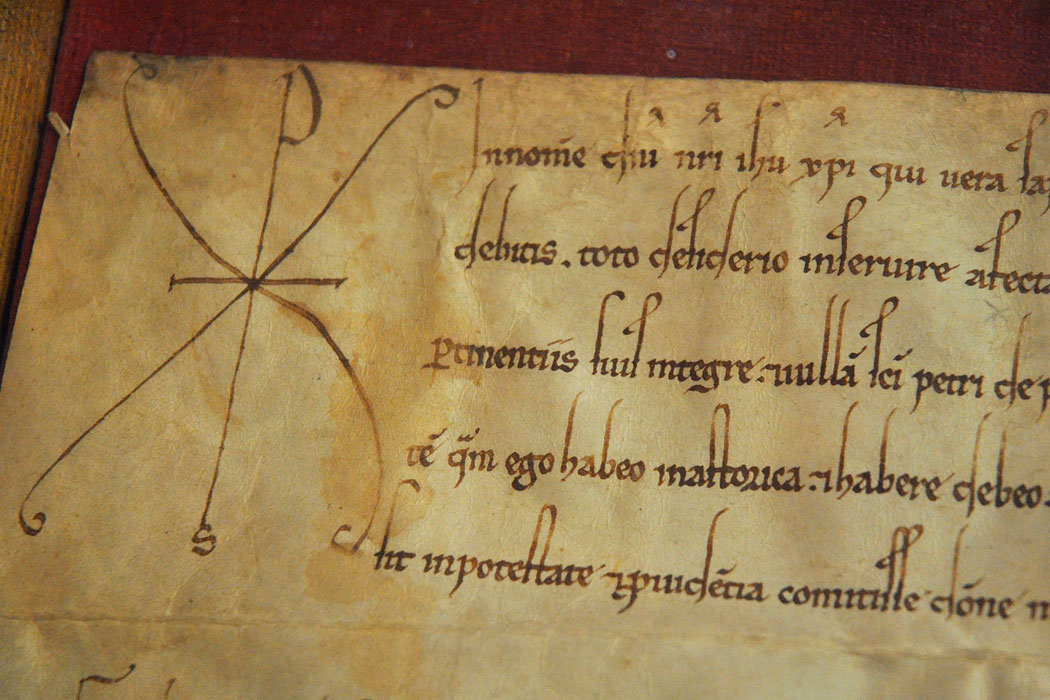 P
S
In nomīe dn̄i nr̄i ihū xp̄i qui uera
debitis. toto desiderio inseruire
ꝑtinentiis suis integre. uillā sc̄i petri de
tē qm̄ ego habeo in astorica. & habere debeo.
sit in potestate & ꝓuidētia comitisse dōne